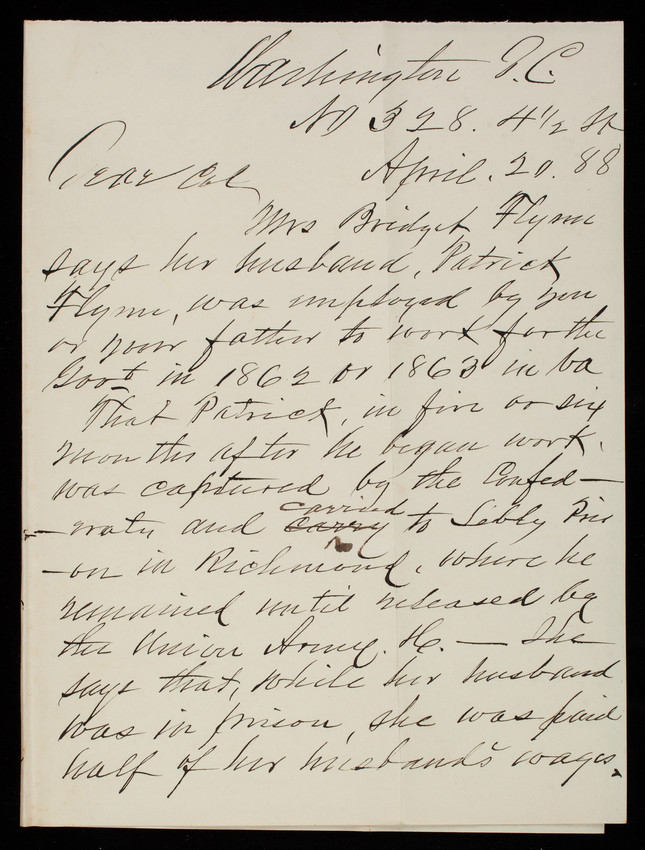 Washington D.C.
No 328. 4 1/2 St
April. 20. 88
Dear Col
Mrs Bridget Flynn
says her husband, Patrick
Flynn, was employed by you
or your father to work for the
Govt in 1862 or 1863 in Va
That Patrick, in five or six
months after he began work.
was captured by the Confed-
-erates and carry carried to Libby Pris
-on in Richmond, where he
remained until released by
the Union Army. — She
says that, while her husband
was in prison, she was paid
half of her husband's wages.